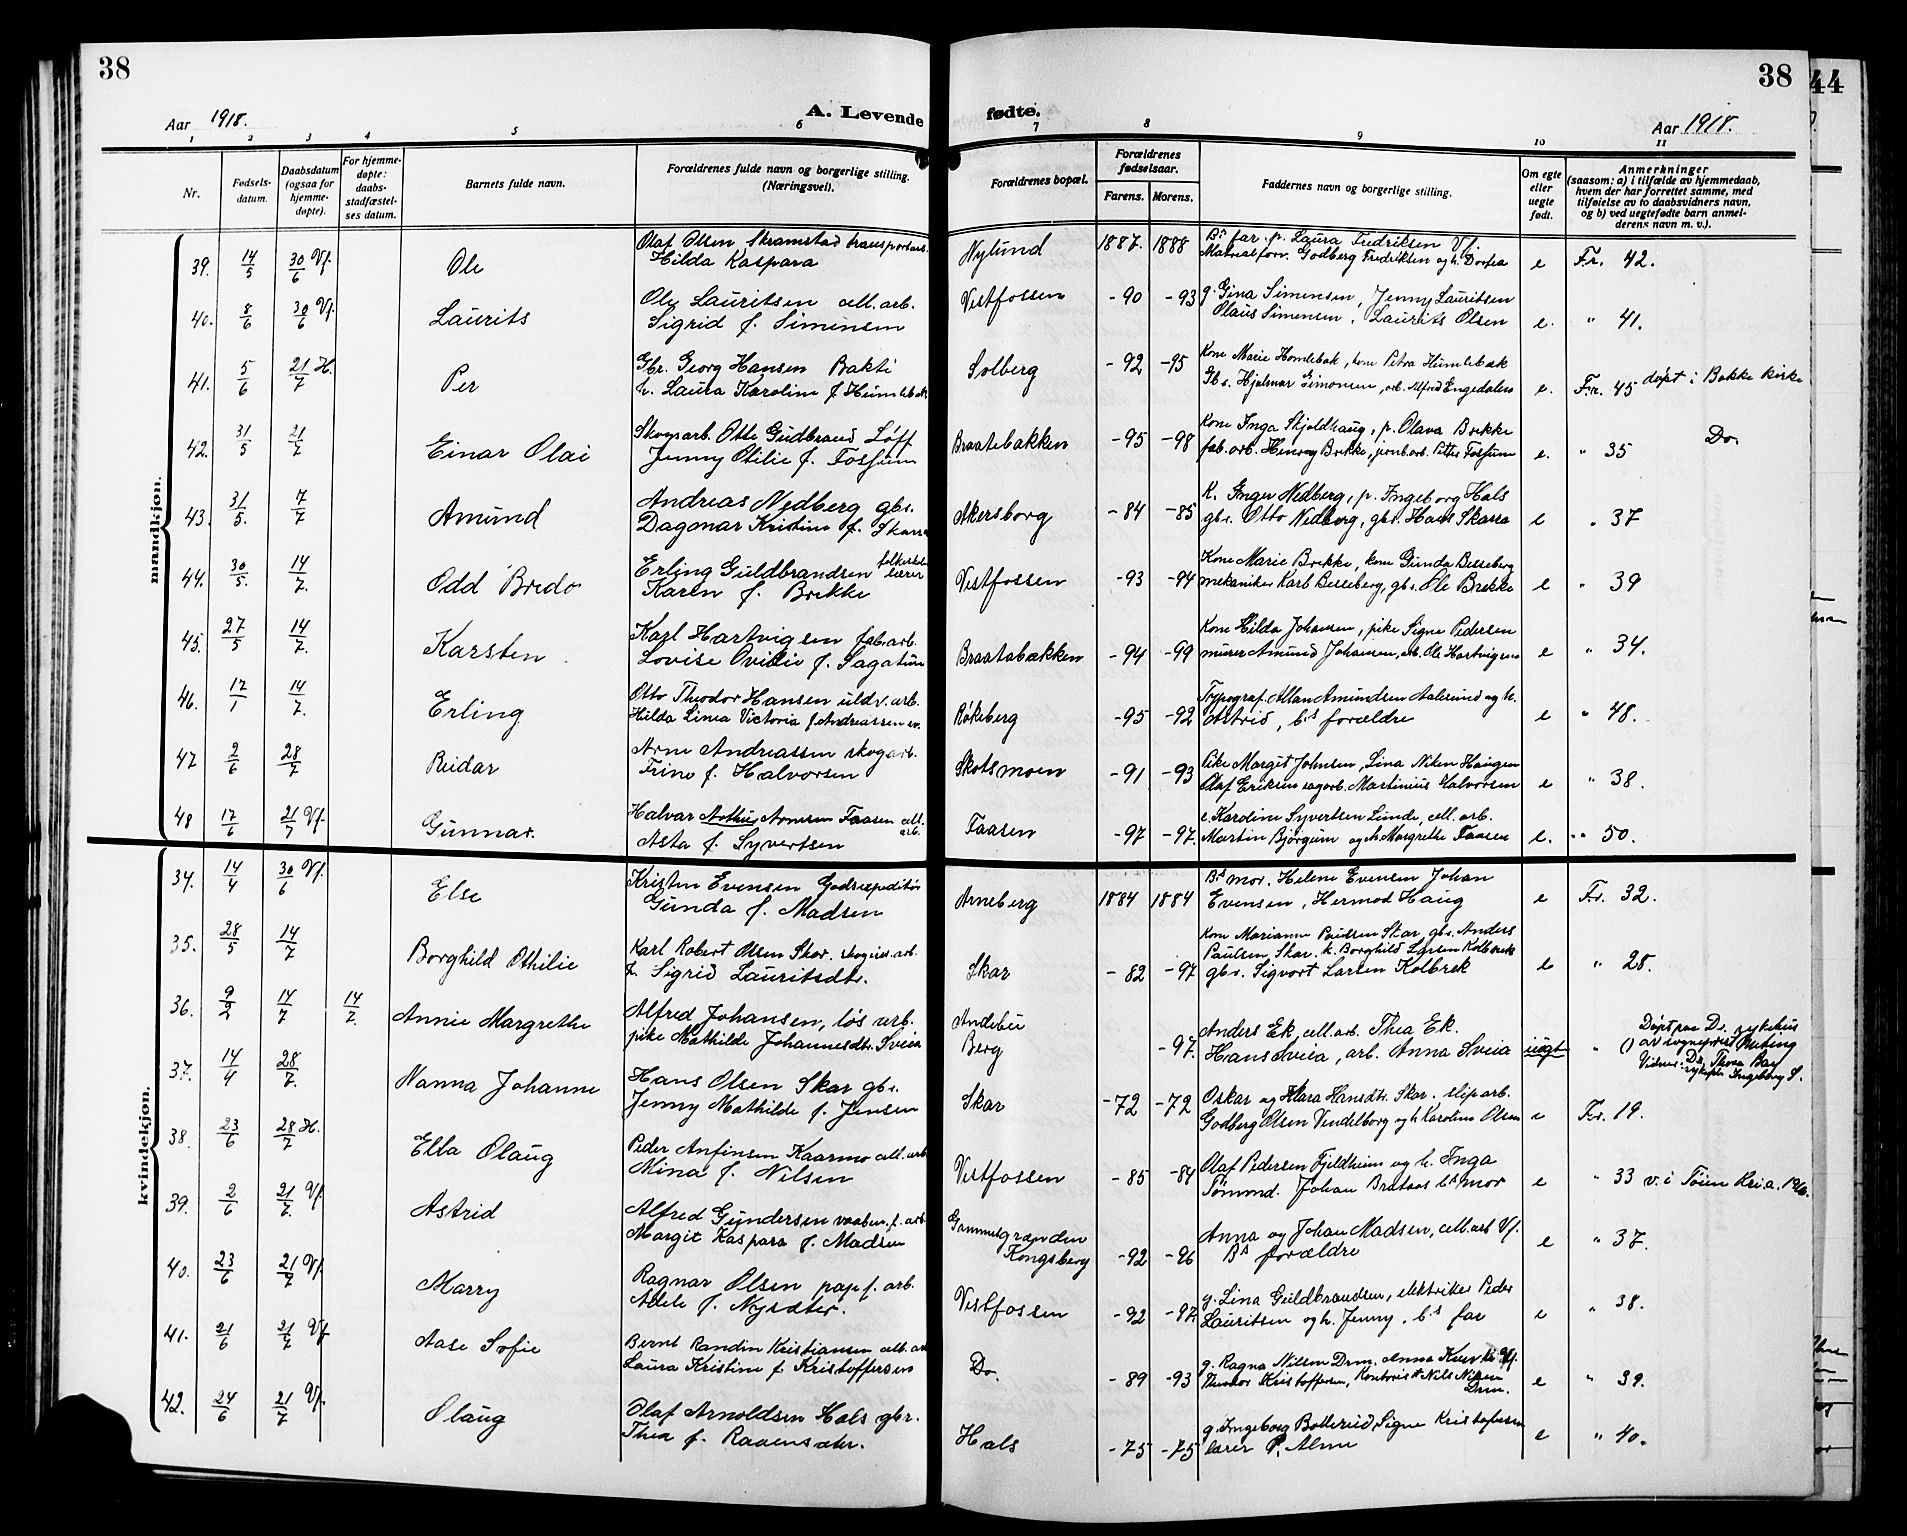 38
38
44
Aar 1918.
A. Levende fødte.
Aar 1918.
1 2 3 4 5 6 7 8 9 10 11
Nr.
Fødsels-
datum.
Daabsdatum
(ogsaa for
hjemme-
døpte).
For hjemme-
døpte:
daabs-
stadfæstel-
ses datum.
Barnets fulde navn.
Forældrenes fulde navn og borgerlige stilling.
(Næringsvei).
Forældrenes bopæl.
Forældrenes
fødselsaar.
Farens. Morens.
Faddernes navn og borgerlige stilling.
Om egte
eller
uegte
født.
Anmerkninger
(saasom: a) i tilfælde av hjemmedaab,
hvem der har forrettet samme, med
tilføielse av to daabsvidners navn,
og b) ved uegtefødte barn anmel-
derens navn m. v.).
mandkjøn.
39. 14/5 30/6 Vf. Ole
Olaf Olsen Skramstad transportarb.
Hilda Kaspara
Nylund 1887. 1888
Bs far. p. Laura Fredriksen Vf.
Materialforv. Godberg Fredriksen og h. Dortea
e Fr. 42.
40. 8/6 30/6 Vf. Laurits
Ole Lauritsen cell. arb.
Sigrid f. Simensen
Vestfossen -90 -93
g. Gina Simensen, Jenny Lauritsen
Olaus Simensen, Laurits Olsen
e. " 41.
41. 5/6 21/7 H. Per
Gbr. Georg Hansen Bakti
h. Laura Karoline f. Humlebæk
Solberg -92 -95
Kone Marie Homlebæk, kone Petra Humlebæk
Gbs. Hjalmar Simonsen, arb. Alfred Engedalen
e. Fr. 45 døpt i Bakke kirke
42. 31/5 21/7 Einar Olai
Skogsarb. Otto Gudbrand Løff
Jenny Otilie f. Fossum
Braatebakken -95 -98
Kone Inga Skjeldhaug, p. Olava Brekke
fab. arb. Henry Brekke, jernb. arb. Petter Fossum
e. " 35 Do.
43. 31/5. 7/7 Amund
Andreas Nedberg gbs.
Dagmar Kristine f. Skarra
Akersborg -84 -85
K. Inger Nedberg, p. Ingeborg Hals
gbs. Otto Nedberg, gbs. Hans Skarra
e " 37
44. 30/5. 14/7. Odd Bredo
Erling Guldbrandsen folkeskolelærer
Karen f. Brekke
Vestfossen -93 -94
Kone Marie Brekke, kone Gunda Besseberg
mekaniker Karl Besseberg, gbs. Ole Brekke
e " 39
45. 27/5 14/7. Karsten
Karl Hartvigsen fab. arb.
Lovise Ovidie f. Sagatun
Braatabækken -94 -99
Kone Hilda Johansen, pike Signe Pedersen
murer Amund Johansen, arb. Ole Hartvigsen
e " 34.
46. 17/1 14/7. Erling
Otto Theodor Hansen uldv. arb.
Hilda Linea Victoria f. Andreassen
Røkeberg -95 -92
Typograf Allan Amundsen Aalesund og h.
Astrid, bs forældre
e " 48.
47 2/6 28/7 Reidar
Arne Andreassen skogarb.
Trine f. Halvorsen
Skotsmoen -91 -93
Pike Margit Johnsen, Lina Haugen
Olaf Eriksen sagarb. Martinius Halvorsen
e " 38.
48 17/6 21/7 Vf. Gunnar.
Halvar Arthur Arnesen Faasen cell. arb.
Asta f. Syvertsen
Faasen -97 -97.
e. Karoline Syvertsen Lunde, cell. arb.
Martin Bjørgum og h. Margrethe Faasen
e. " 50.
kvindekjøn.
34. 14/4 30/6 Vf. Else
Kristen Evensen Godsexpeditør
Gunda f. Madsen
Arneberg 1884 1884
Bs mor. Helene Evensen Johan
Evensen, Hermod Haug
e Fr. 32.
35. 28/5 14/7 Borghild Othilie
Karl Robert Olsen Skar. skogsarb.
h. Sigrid Lauritsdtr.
Skar -82 -97
Kone Marianne Paulsen Skar, gbs. Anders
Paulsen Skar. k. Borghild Larsen Kolbrek
gbs. Sigvart Larsen Kolbrek
e " 28.
36. 9/2 14/7 14/7. Annie Margrethe
Alfred Johansen, løs arb.
pike Mathilde Johannesdtr. Sveia
Andebu
Berg -97.
Anders Ek, cell. arb. Thea Ek.
Hans Sveia, arb. Anna Sveia
uegt " () Døpt paa Dr. sykehus
av sogneprest
Vidner: Thora Bay
Ingeborg S.
37. 14/4 28/7. Nanna Johanne
Hans Olsen Skar gbs.
Jenny Mathilde f. Jensen
Skar -72 -72
Oskar og Klara Hansdtr. Skar. slip arb.
Godberg Olsen Vendelborg og h. Karoline Olsen
e Fr. 19.
38. 23/6 28/7 H. Ella Olaug
Peder Anfinsen Kaarmo cell. arb
Mina f. Nilsen
Vestfossen -85 -84
Olaf Pedersen Fjeldheim og h. Inga
Tømmd. Johan Brataas bs mor
e " 33 v. i Tøien Kr.a.
39. 2/6 21/7. Vf. Astrid
Alfred Gundersen vaabenf. arb.
Margit Kaspara f. Madsen
Gammelgrænden
Kongsberg -92 -96
Anna og Johan Madsen, cell. arb Vf.
Bs forældre
e " 37.
40. 23/6 21/7 Vf. Marry
Ragnar Olsen pap f. arb.
Adele f. Nysæter.
Vestfossen -92 -97.
g. Lina Guldbrandsen, elektriker Peder
Lauritsen og h. Jenny. bs far
e " 38.
41. 21/6 21/7 Vf Aase Sofie
Bernt Randin Kristiansen cell. arb
Laura Kristine f. Kristoffersen
Do. -89 -93
g. Ragna Nilsen Drm. Anna
Theodor Kristoffersen, Kontorist Nils Nilsen
Drm.
e " 39.
42. 24/6 21/7 Vf. Olaug
Olaf Arnoldsen Hals gbr.
Thea f. Raaensæter.
Hals -75 -75
g. Ingeborg Bollerud, Signe Kristofersen
lærer P. Alme
e " 40.